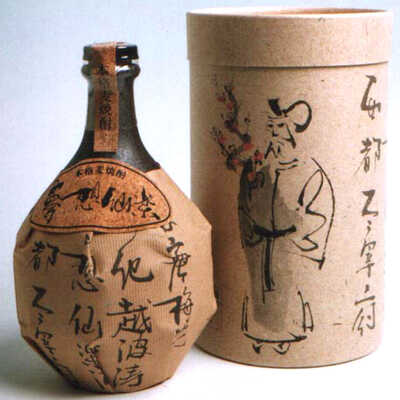 本格麦焼酎
本格麦焼酎
夢想仙楽
唐梅
越波涛
想仙楽
都太宰
西都太宰府